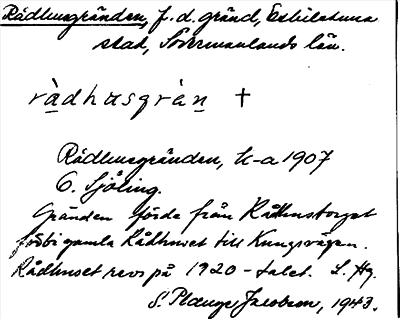 Rådhusgränden, f. d. gränd, Eskilstuna
stad, Södermanlands län.
ràdhusgrän †
Rådhusgränden, k-a 1907
C. Sjöling.
Gränden förde från Rådhustorget
förbi gamla Rådhuset till Kungsvägen.
Rådhuset revs på 1920-talet. L. Hg.
S. Jacobson, 1943.